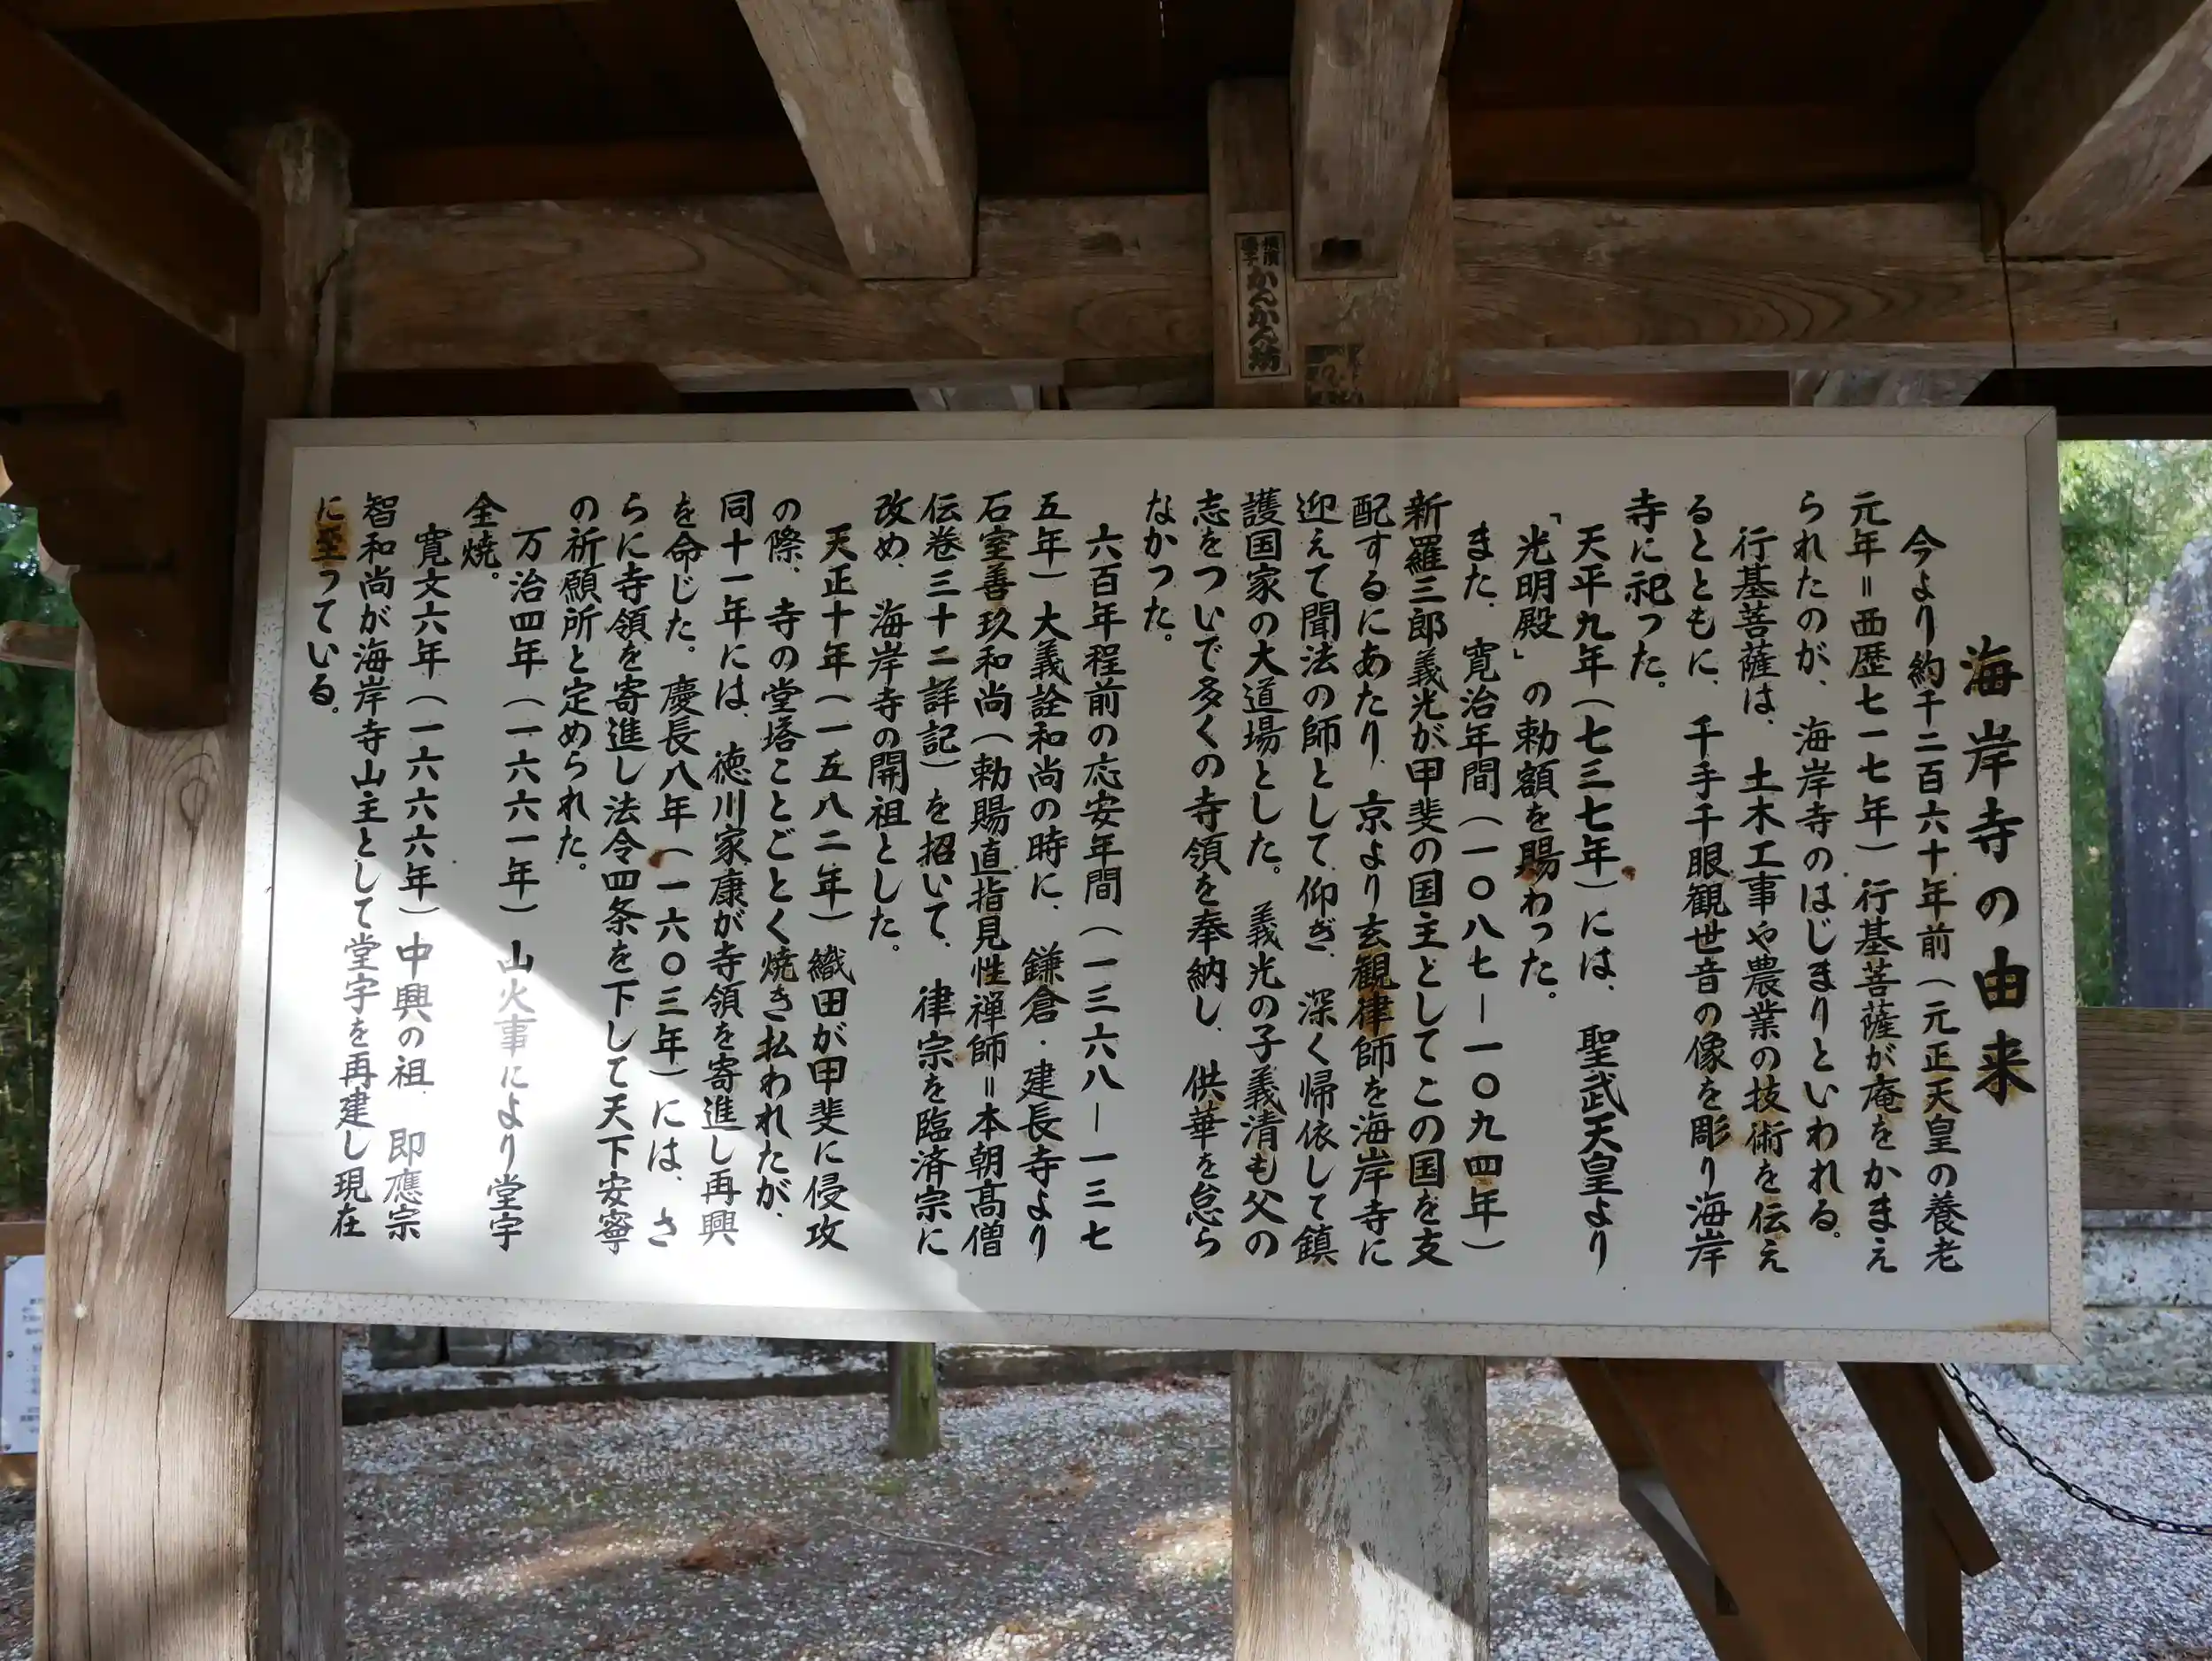 海岸寺の由来
今より約千二百六十年前（元正天皇の養老
元年＝西歴七一七年）行基菩薩が庵をかまえ
られたのが、海岸寺のはじまりといわれる。
行基菩薩は、土木工事や農業の技術を伝え
るとともに、千手千眼観世音の像を彫り海岸
寺に祀った。
天平九年（七三七年）には、聖武天皇より
「光明殿」の勅額を賜わった。
また、寛治年間（一〇八七－一〇九四年）
新羅三郎義光が甲斐の国主としてこの国を支
配するにあたり、京より玄観律師を海岸寺に
迎えて聞法の師として仰ぎ、深く帰依して鎮
護国家の大道場とした。義光の子義清も父の
志をついで多くの寺領を奉納し、供華を怠ら
なかった。
六百年程前の応安年間（一三六八－一三七
五年）大義詮和尚の時に、鎌倉・建長寺より
石室善玖和尚（勅賜直指見性禅師＝本朝高僧
伝巻三十二詳記）を招いて、律宗を臨済宗に
改め、海岸寺の開祖とした。
天正十年（一五八二年）織田が甲斐に侵攻
の際、寺の堂塔ことごとく焼き払われたが、
同十一年には、徳川家康が寺領を寄進し再興
を命じた。慶長八年（一六〇三年）には、さ
らに寺領を寄進し法令四条を下して天下安寧
の祈願所と定められた。
万治四年（一六六一年）山火事により堂宇
全焼。
寛文六年（一六六六年）中興の祖、即應宗
智和尚が海岸寺山主として堂宇を再建し現在
に至っている。
かんかん坊